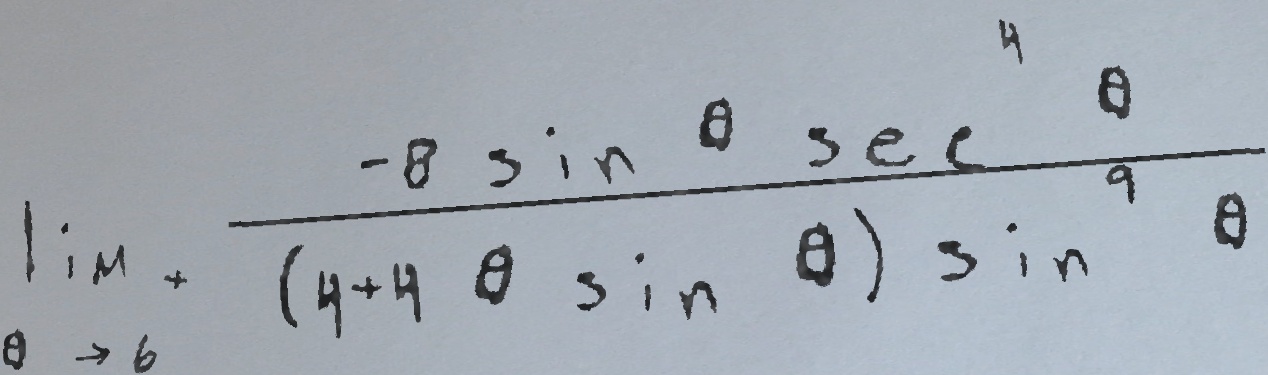 lim θ → 6⁺ (-8 sin θ sec⁴ θ) / ((4+4 θ sin θ) sin⁹ θ)